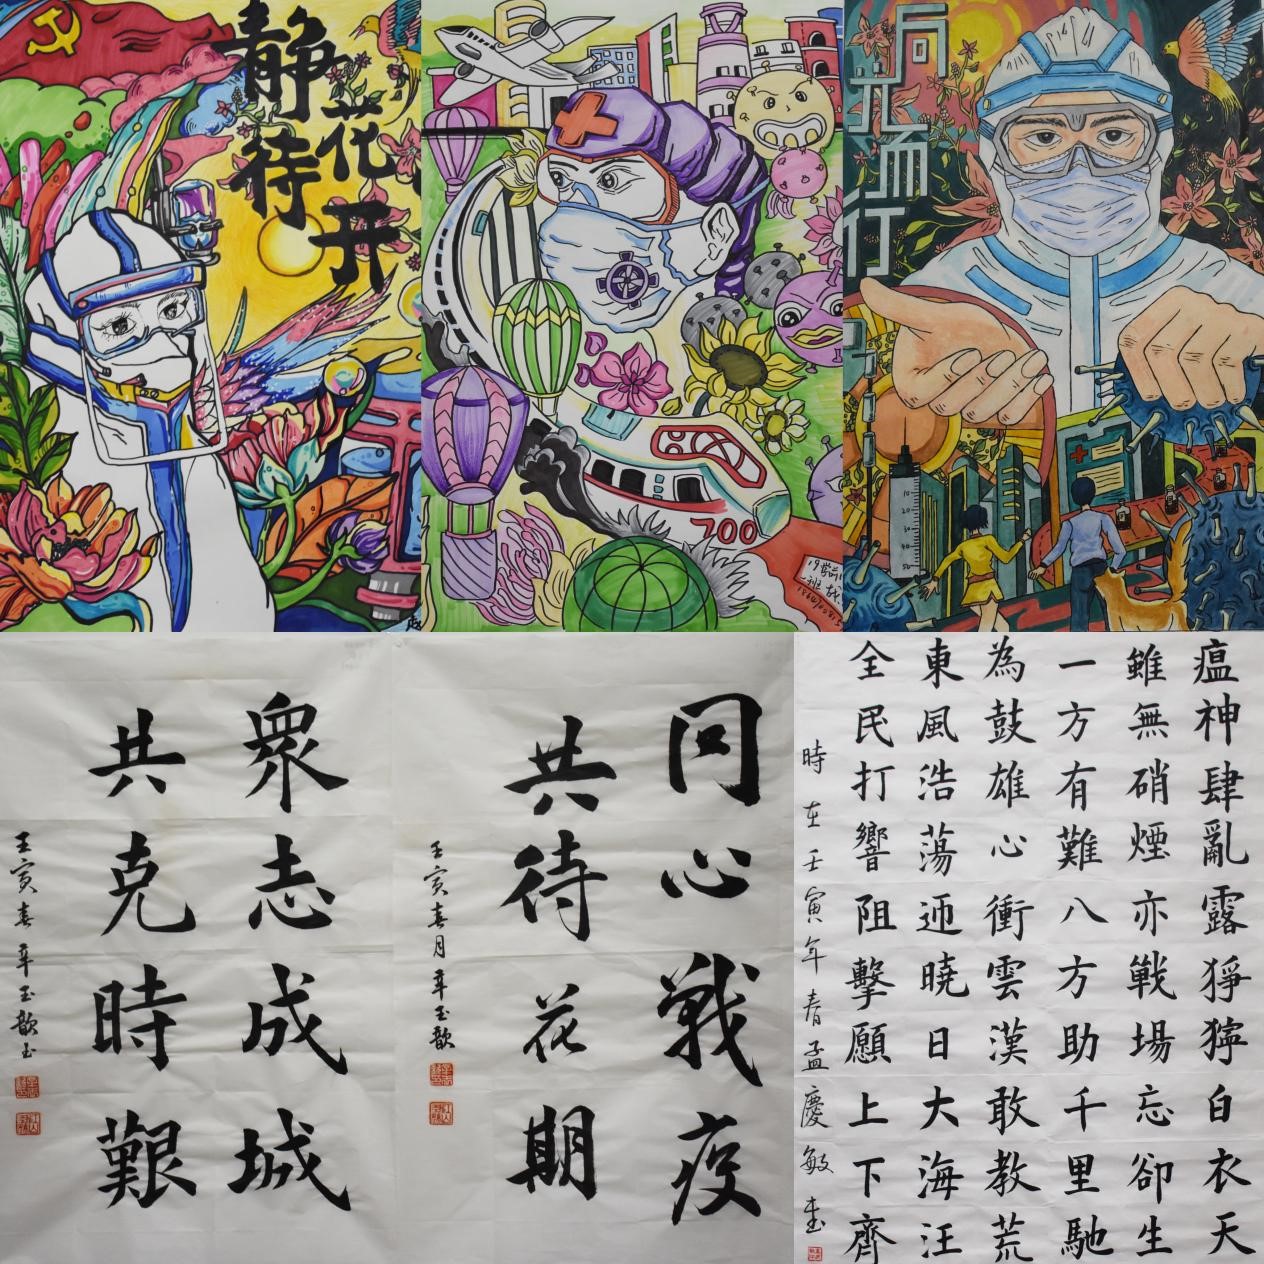 静待
花开
700
向光而行
衆志成城
共克時艱
壬寅春辛玉歆书
同心戰疫
共待花期
壬寅春月辛玉歆
瘟神肆亂露猙獰白衣天
雖無硝煙亦戰場忘卻生
一方有難八方助千里馳
為鼓雄心衝雲漢敢教荒
東風浩蕩迎曉日大海汪
全民打響阻擊願上下齊
時在壬寅年春孟慶敏書